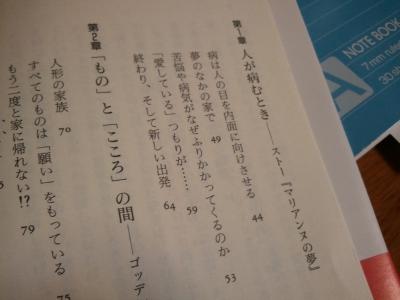 第1章 人が病むとき——ストー『マリアンヌの夢』
病は人の目を内面に向けさせる 44
夢のなかの家で 49
苦悩や病気がなぜふりかかってくるのか 53
「愛している」つもりが…… 59
終わり、そして新しい出発 64
第2章 「もの」と「こころ」の間——ゴッデ
人形の家族 70
すべてのものは「願い」をもっている 75
もう二度と家に帰れない!? 79
A
NOTE BOOK
7mm rule
30 sh